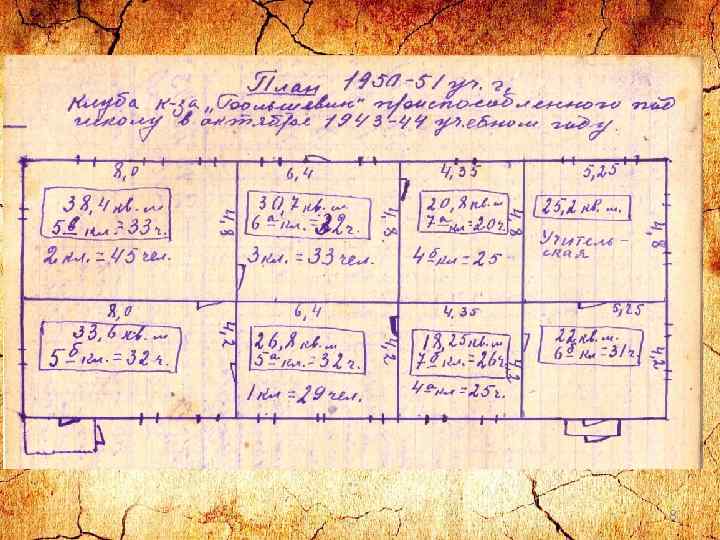 План 1950-51 уч. г.
Клуба к-за "Большевик" приспособленного под
школу в октябре 1943-44 учебном году.
8,0 6,4 4,35 5,25
38,4 кв. м
5в кл. = 33 ч.
2 кл. = 45 чел.
4,8
30,7 кв. м
6а кл. = 32 ч.
3 кл. = 33 чел.
4,8
20,8 кв. м
7а кл = 20 ч.
4б кл = 25
4,8
25,2 кв. м.
Учитель-
ская
4,8
8,0 6,4 4,35 5,25
33,6 кв. м.
5б кл. = 32 ч.
4,2
26,8 кв. м.
5а кл. = 32 ч.
1 кл = 29 чел.
4,2
18,25 кв. м
7б кл. = 26 ч.
4а кл = 25 ч.
4,2
22 кв. м.
6б кл = 31 ч.
4,2
8